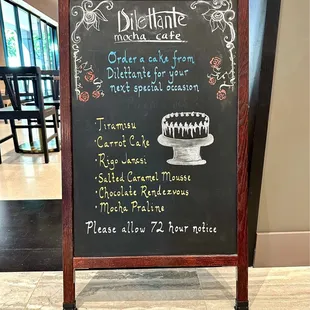 Dilettante
mocha cafe
Order a cake from
Dilettante for your
next special occasion
· Tiramisu
· Carrot Cake
· Rigo Janasi
· Salted Caramel Mousse
· Chocolate Rendezvous
· Mocha Praline
Please allow 72 hour notice